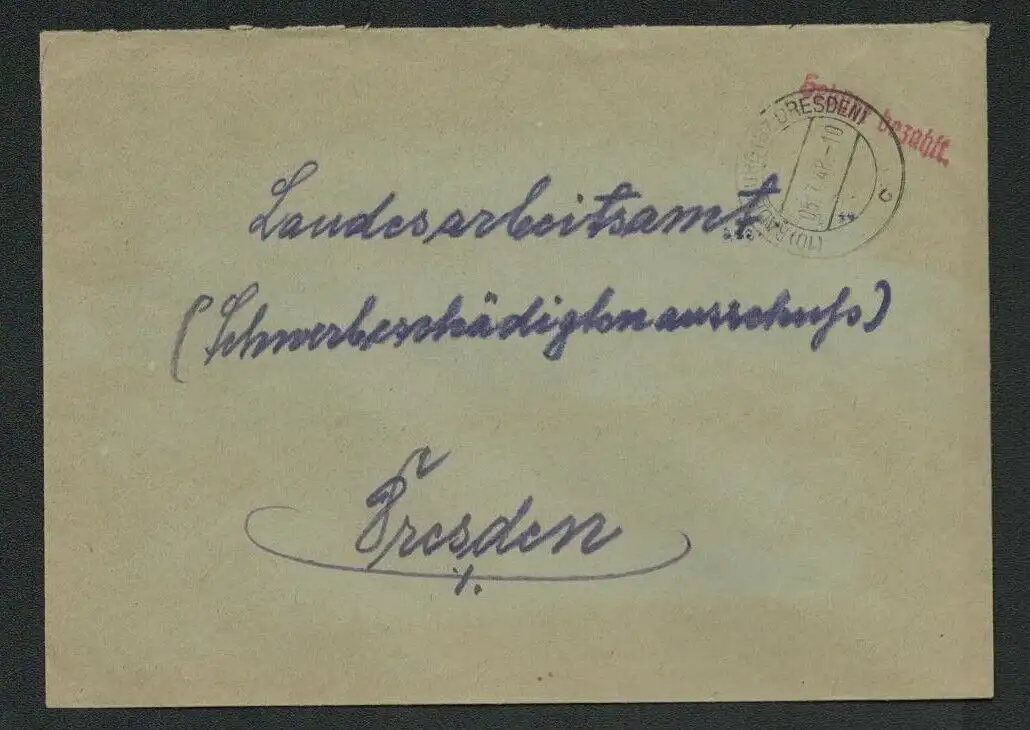 Gebühr bezahlt.
(10) RADEBURG (BZ DRESDEN)
05.7.48.-10
Landesarbeitsamt
(Schwerbeschädigtenausschuss)
Dresden